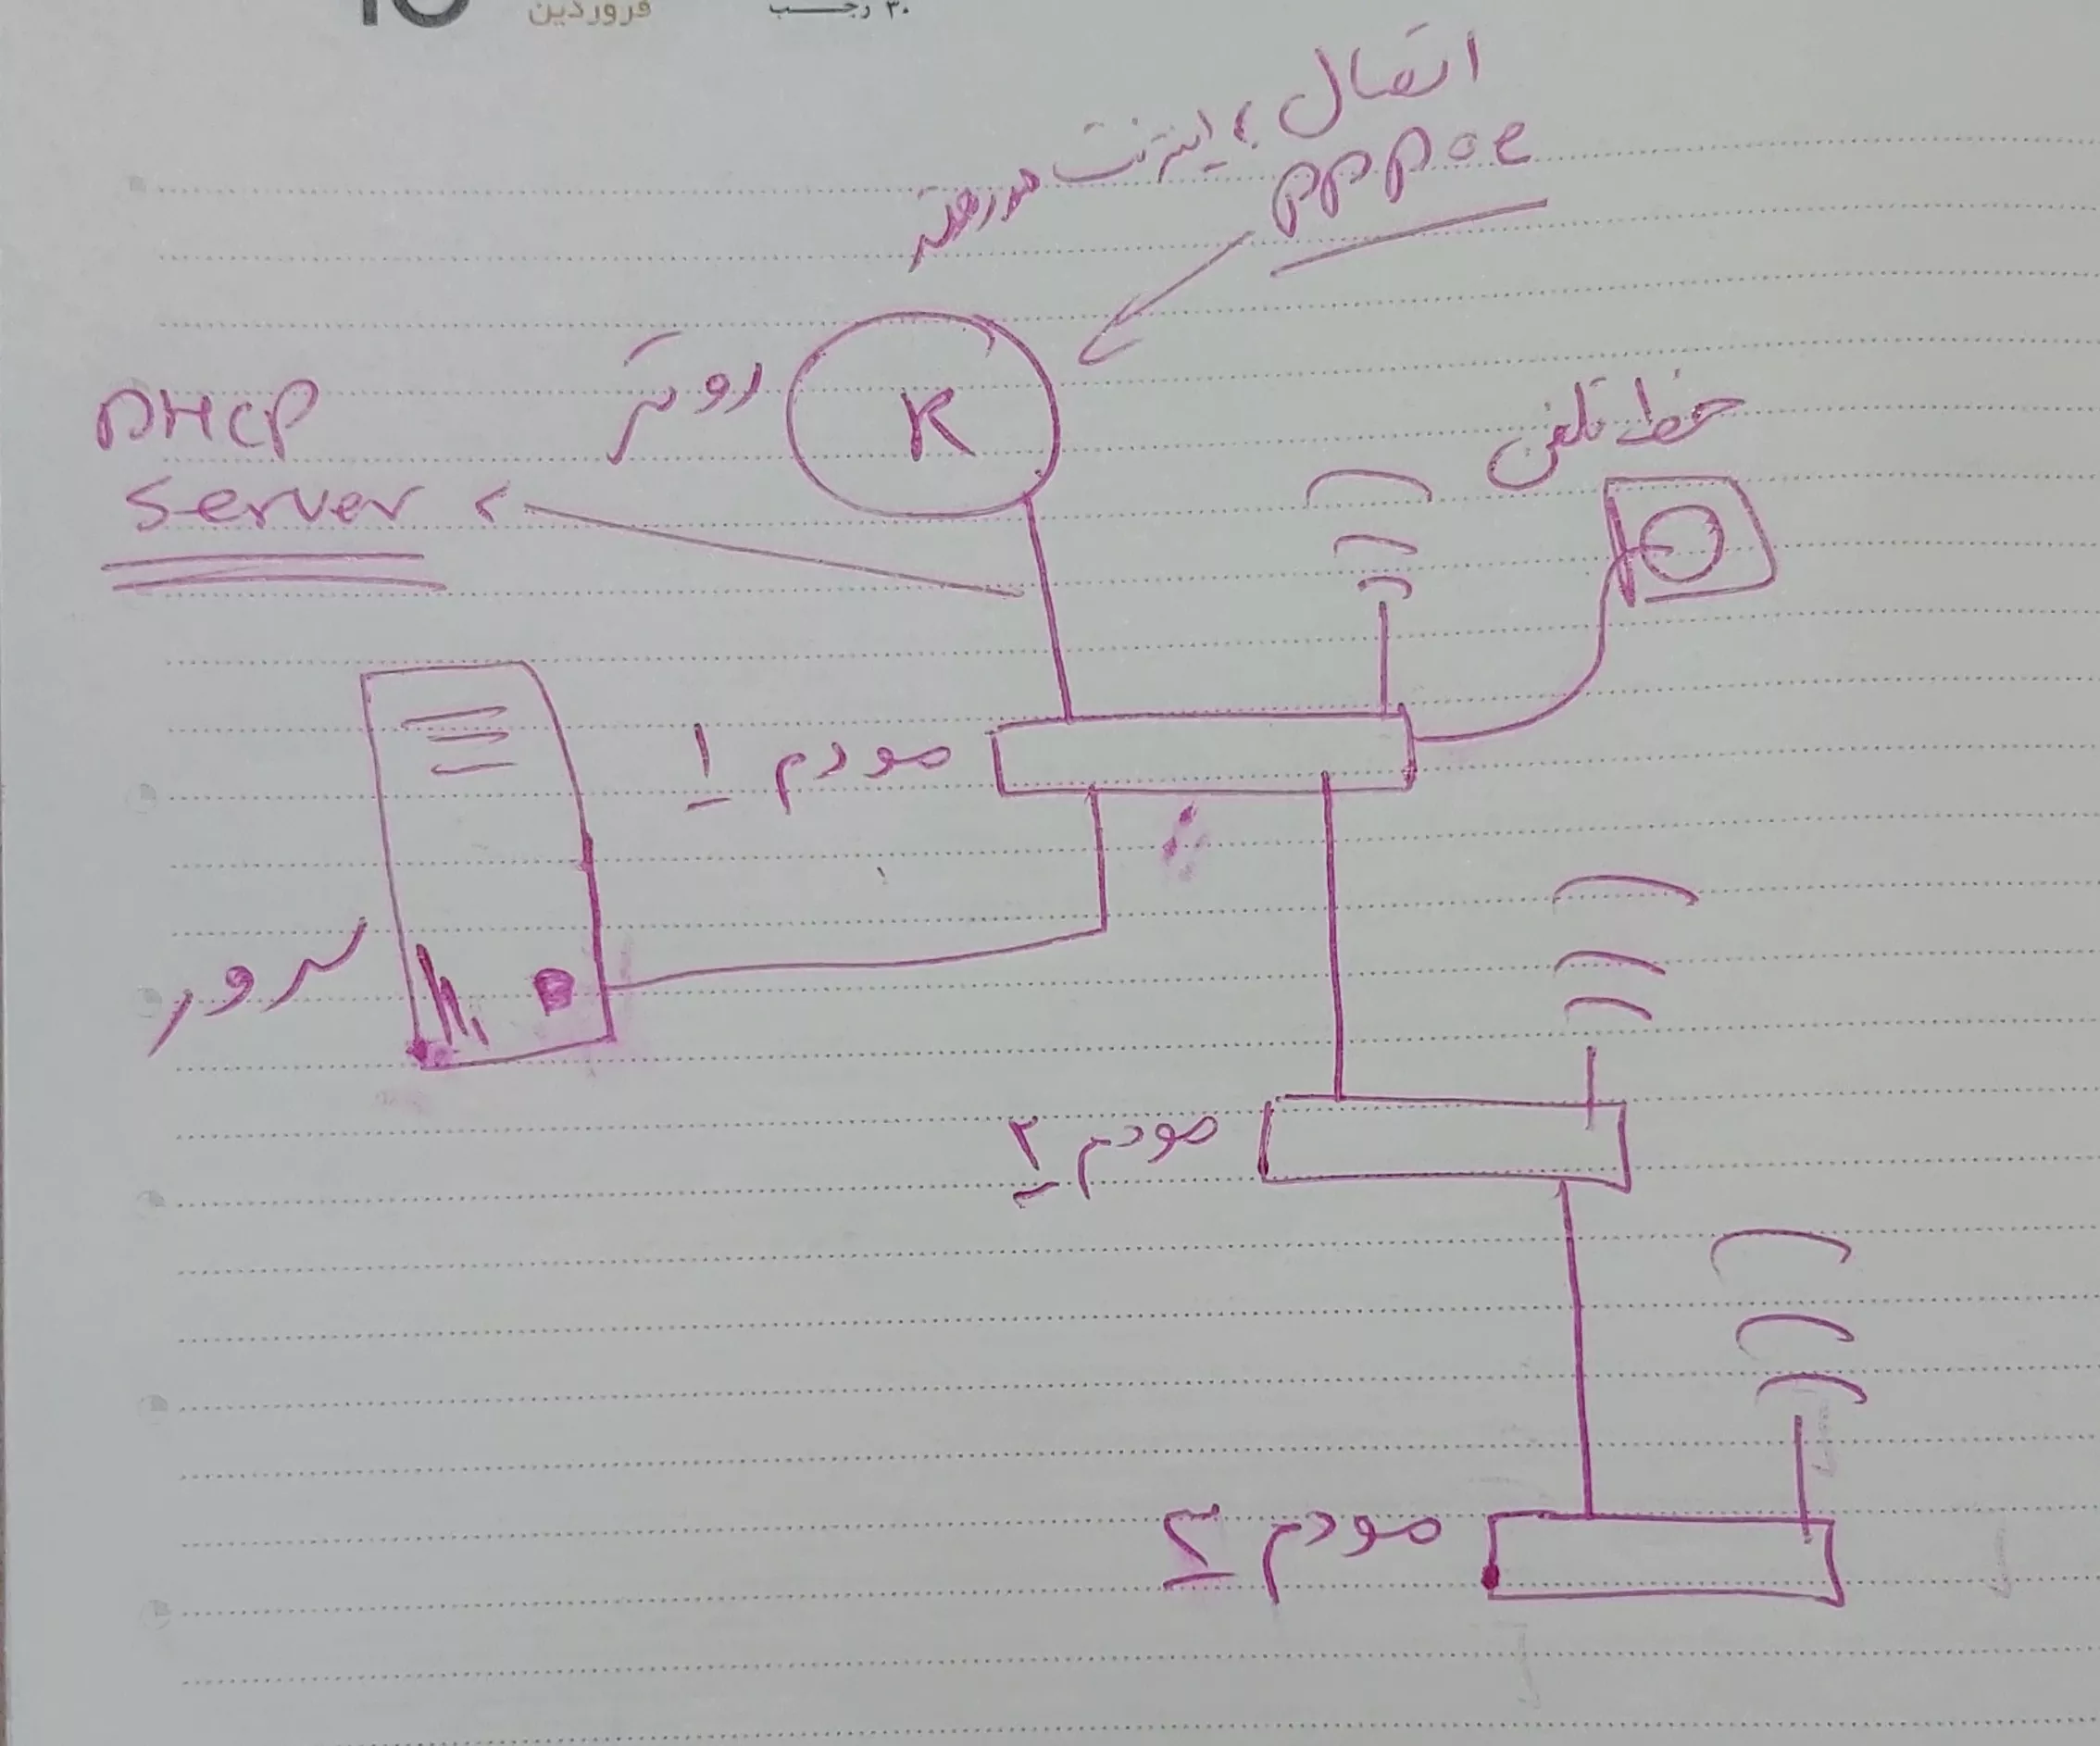 فروردین
۳۰ رجب
اتصال به اینترنت
pppoe
روتر
K
DHCP
Server
خط تلفن
مودم ۱
سرور
مودم ۲
مودم ۳